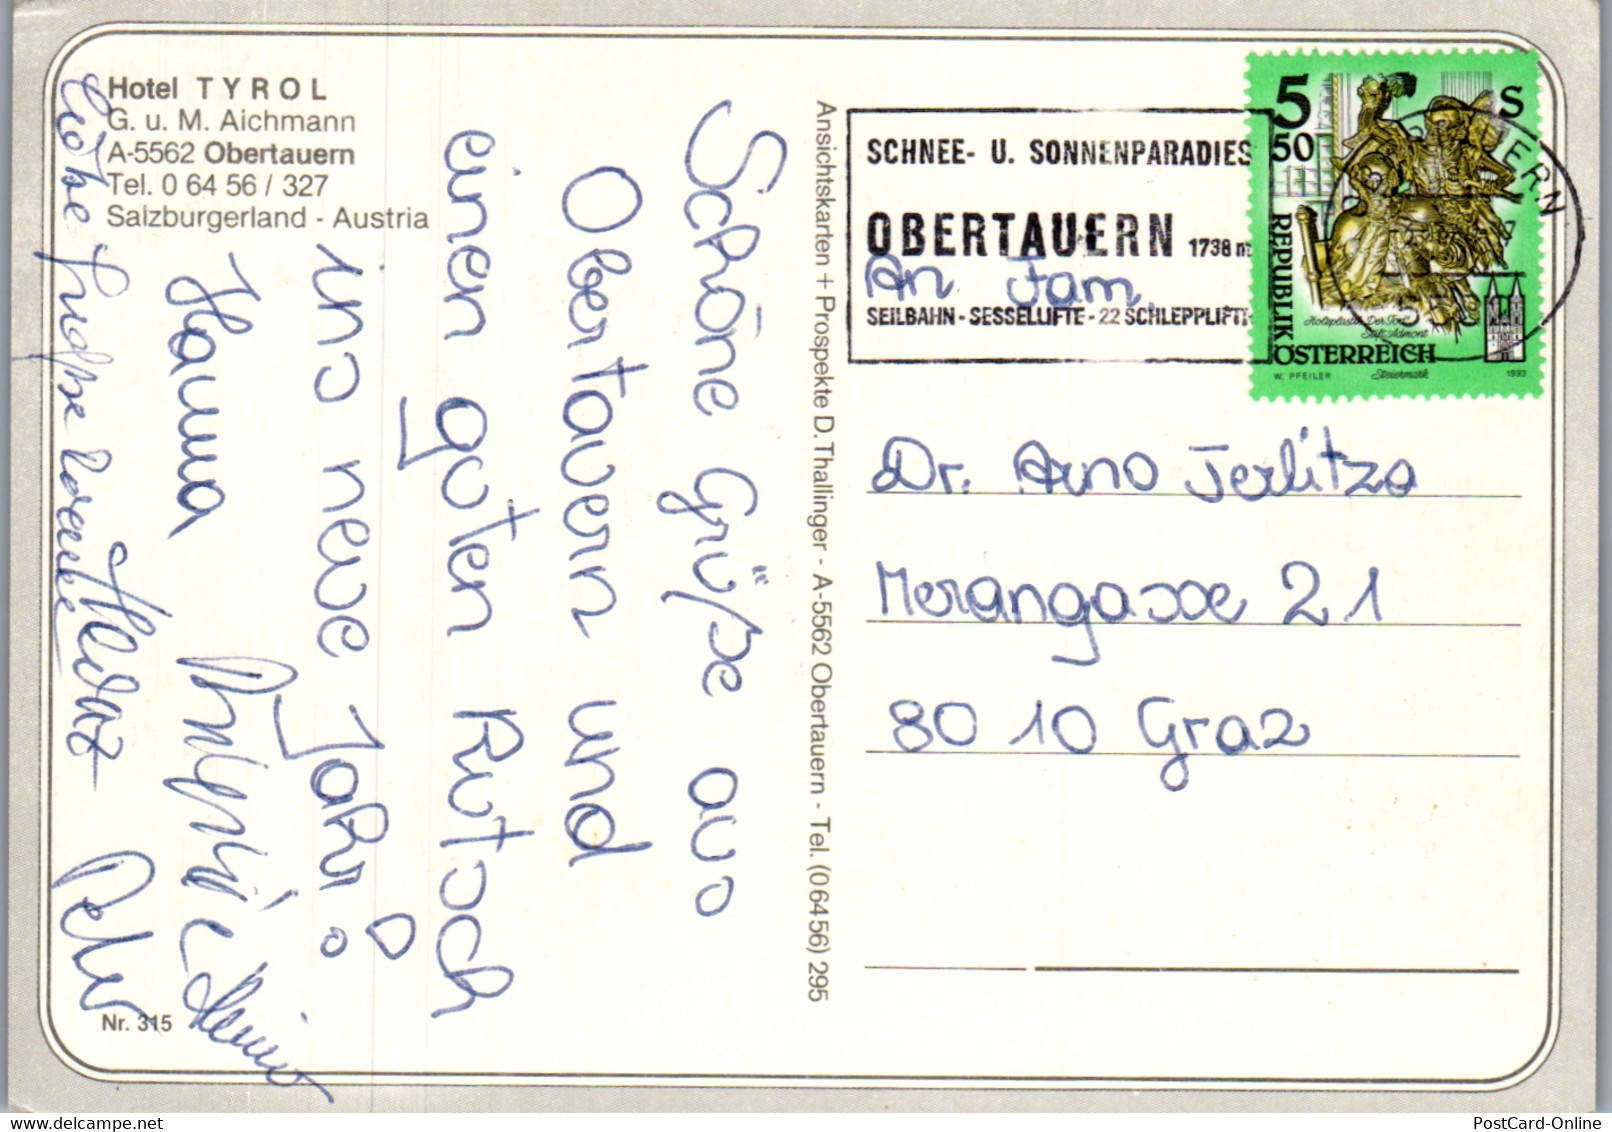 Hotel TYROL
G. u. M. Aichmann
A-5562 Obertauern
Tel. 0 64 56 / 327
Salzburgerland - Austria
Schöne Grüße aus
Obertauern und
einen guten Rutsch
ins neue Jahr!
Hanna
Peter
Nr. 315
Ansichtskarten + Prospekte D. Thallinger - A-5562 Obertauern - Tel. (06456) 295
SCHNEE- U. SONNENPARADIES
OBERTAUERN 1738 m
SEILBAHN - SESSELLIFTE - 22 SCHLEPPLIFTE
5 50 S
REPUBLIK
ÖSTERREICH
Stift Admont
Steiermark
W. PFEILER
1993
An Fam.
Dr. Arno Jerlitza
Merangasse 21
8010 Graz
PostCard-Online